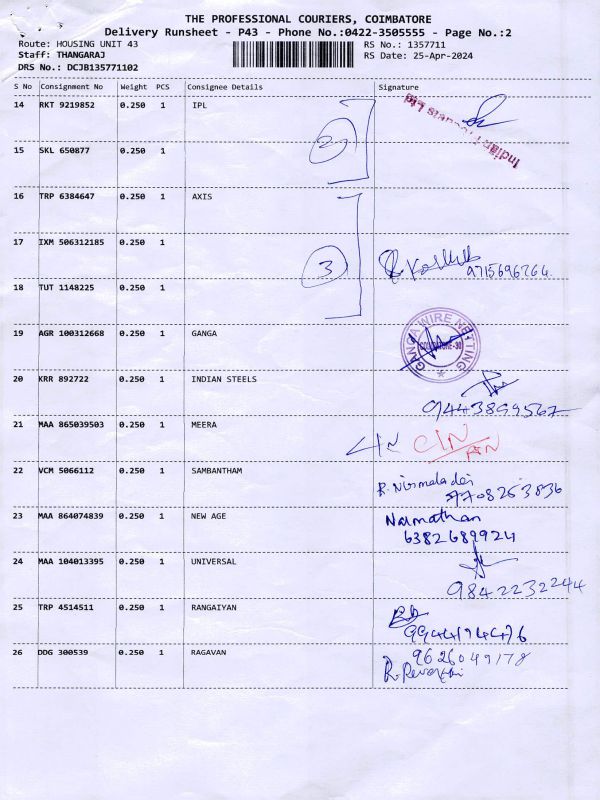 THE PROFESSIONAL COURIERS, COIMBATORE
Delivery Runsheet - P43 - Phone No.:0422-3505555 - Page No.:2
Route: HOUSING UNIT 43 RS No.: 1357711
Staff: THANGARAJ RS Date: 25-Apr-2024
DRS No.: DCJB135771102
S No Consignment No Weight PCS Consignee Details Signature
14 RKT 9219852 0.250 1 IPL
2
15 SKL 650877 0.250 1
16 TRP 6384647 0.250 1 AXIS
17 IXM 506312185 0.250 1
3 9715696264
18 TUT 1148225 0.250 1
GANGA WIRE NETTING
19 AGR 100312668 0.250 1 GANGA
20 KRR 892722 0.250 1 INDIAN STEELS
9443899567
21 MAA 865039503 0.250 1 MEERA
22 VCM 5066112 0.250 1 SAMBANTHAM R. Nirmaladei
9708253836
23 MAA 864074839 0.250 1 NEW AGE Narmathan
6382689924
24 MAA 104013395 0.250 1 UNIVERSAL
9842232244
25 TRP 4514511 0.250 1 RANGAIYAN
26 DDG 300539 0.250 1 RAGAVAN 9626049178